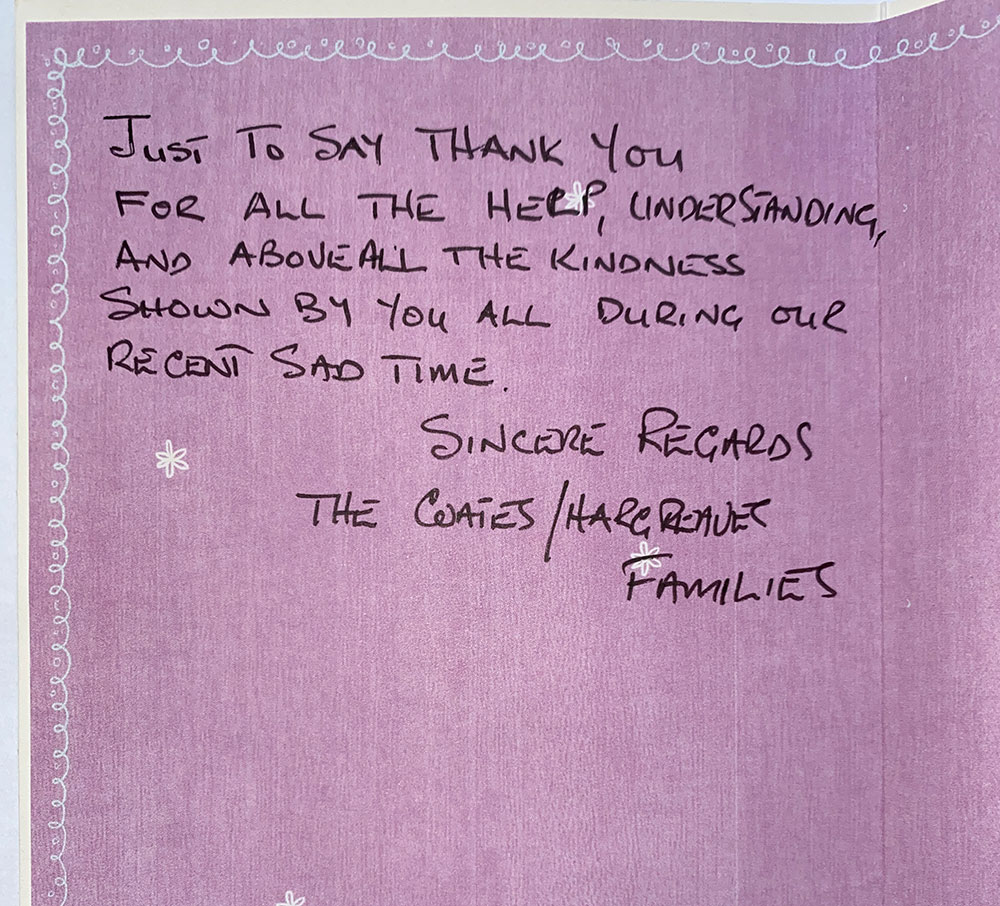 JUST TO SAY THANK YOU
FOR ALL THE HELP, UNDERSTANDING,
AND ABOVE ALL THE KINDNESS
SHOWN BY YOU ALL DURING OUR
RECENT SAD TIME.
SINCERE REGARDS
THE COATES/HARGREAVES
FAMILIES